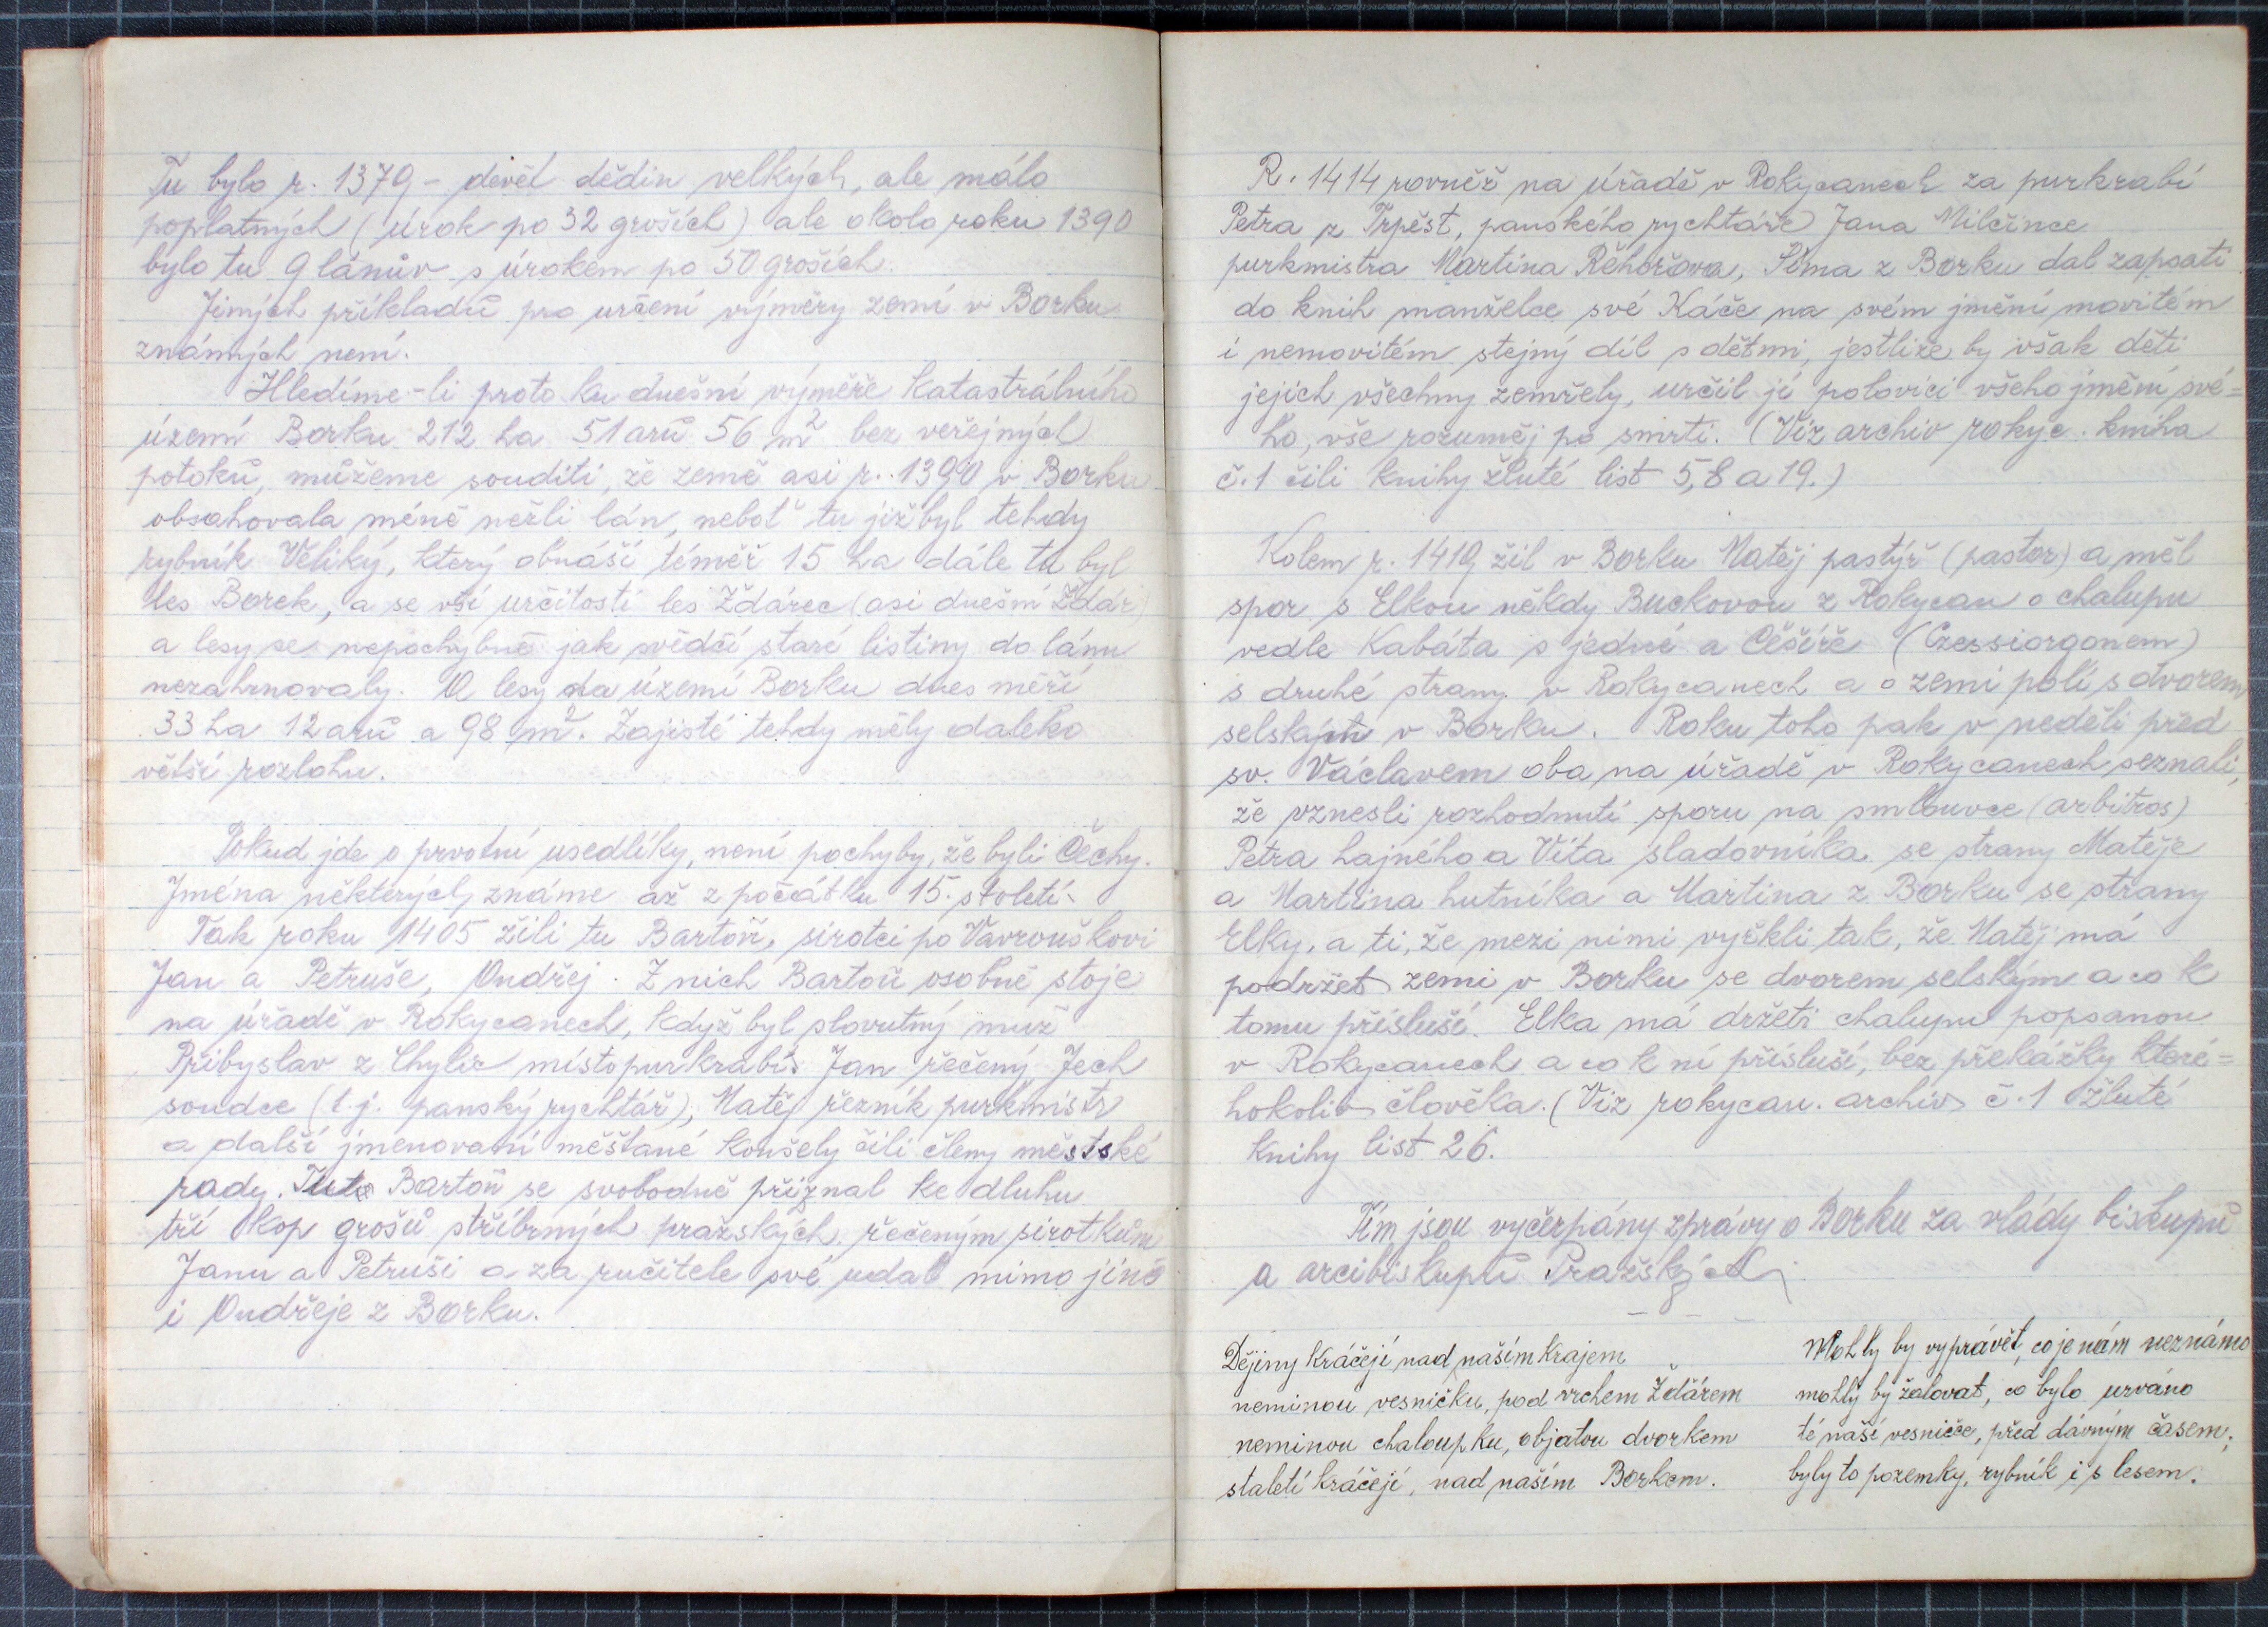 Tu bylo r. 1379 - devět dědin velkých, ale málo
poplatných (úrok po 32 groších) ale okolo roku 1390
bylo tu 9 lánův s úrokem po 50 groších.
Jiných příkladů pro určení výměry zemí v Borku
známých není.
Hledíme-li proto ku dnešní výměře katastrálního
území Borku 212 ha 51 arů 56 m² bez veřejných
potoků, můžeme souditi, že země asi r. 1390 v Borku
obsahovala méně nežli lán, neboť tu již byl tehdy
rybník Veliký, který obnáší téměř 15 ha dále tu byl
les Borek, a se vší určitostí les Žďárec (asi dnešní Žďár)
a lesy se nepochybně jak svědčí staré listiny do lánu
nezahrnovaly. A lesy na území Borku dnes měří
33 ha 12 arů a 98 m². Zajisté tehdy měly daleko
větší rozlohu.
Pokud jde o prvotní usedlíky, není pochyby, že byli Čechy.
Jména některých známe až z počátku 15. století.
Tak roku 1405 žili tu Bartoň, sirotci po Vavrouškovi
Jan a Petruše, Ondřej. Z nich Bartoň osobně stoje
na úřadě v Rokycanech, když byl slovutný muž
Přibyslav z Chylic místopurkrabí, Jan řečený Jech
soudce (t.j. panský rychtář), Matěj řezník purkmistr
a další jmenovaní měšťané konšely čili členy městské
rady. Tuto Bartoň se svobodně přiznal ke dluhu
tří kop grošů stříbrných pražských řečeným sirotkům
Janu a Petruši a za ručitele své udal mimo jiné
i Ondřeje z Borku.
R. 1414 rovněž na úřadě v Rokycanech za purkrabí
Petra z Trpěst, panského rychtáře Jana Milčince
purkmistra Martina Řehořova, Šíma z Borku dal zapsati
do knih manželce své Káče na svém jmění movitém
i nemovitém stejný díl s dětmi, jestliže by však děti
jejich všechny zemřely, určil jí polovici všeho jmění své=
ho, vše rozuměj po smrti. (Viz archiv rokyc. kniha
č. 1 čili knihy žluté list 5, 8 a 19.)
Kolem r. 1419 žil v Borku Matěj pastýř (pastor) a měl
spor s Elkou někdy Buckovou z Rokycan o chalupu
vedle Kabáta s jedné a Češíře (Czessiorgonem)
s druhé strany v Rokycanech a o zemi polí s dvorem
selským v Borku. Roku toho pak v neděli před
sv. Václavem oba na úřadě v Rokycanech seznali,
že vznesli rozhodnutí sporu na smlouvce (arbitros)
Petra hajného a Víta sladovníka se strany Matěje
a Martina hutníka a Martina z Borku se strany
Elky, a ti, že mezi nimi vyřkli tak, že Matěj má
podržet zemi v Borku se dvorem selským a co k
tomu přísluší. Elka má držeti chalupu popsanou
v Rokycanech a co k ní přísluší, bez překážky které=
hokoliv člověka. (Viz rokycan. archiv č. 1 žluté
knihy list 26.
Tím jsou vyčerpány zprávy o Borku za vlády biskupů
a arcibiskupů Pražských.
Dějiny kráčejí nad naším krajem
neminou vesničku, pod vrchem Žďárem
neminou chaloupku, objatou dvorkem
staletí kráčejí, nad naším Borkem.
Mohly by vyprávět, co je nám neznámo
mohly by žalovat, co bylo urváno
té naší vesničce, před dávným časem,
byly to pozemky, rybník i s lesem.